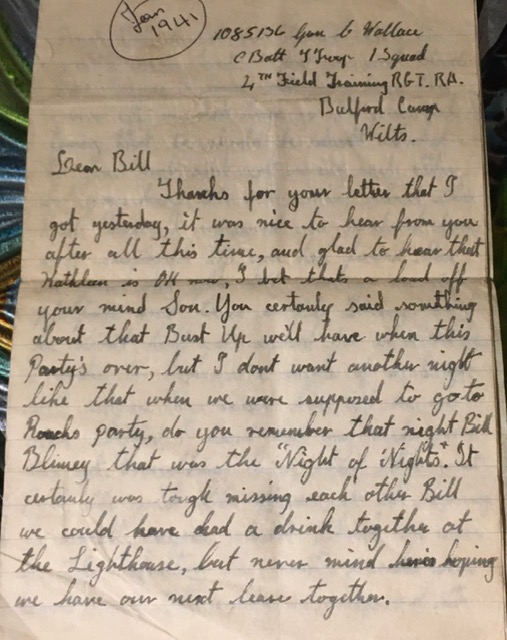 Jan
1941
1085136 Gnr G Wallace
C Batt I Troop 1 Squad
4TH Field Training RGT. RA.
Bulford Camp
Wilts.
Dear Bill
Thanks for your letter that I
got yesterday, it was nice to hear from you
after all this time, and glad to hear that
Kathleen is OK now, I bet thats a load off
your mind Son. You certainly said something
about that Bust Up we'll have when this
Party's over, but I dont want another night
like that when we were supposed to go to
party, do you remember that night Bill
Blimey that was the "Night of Nights". It
certainly was tough missing each other Bill
we could have had a drink together at
the Lighthouse, but never mind heres hoping
we have our next leave together.